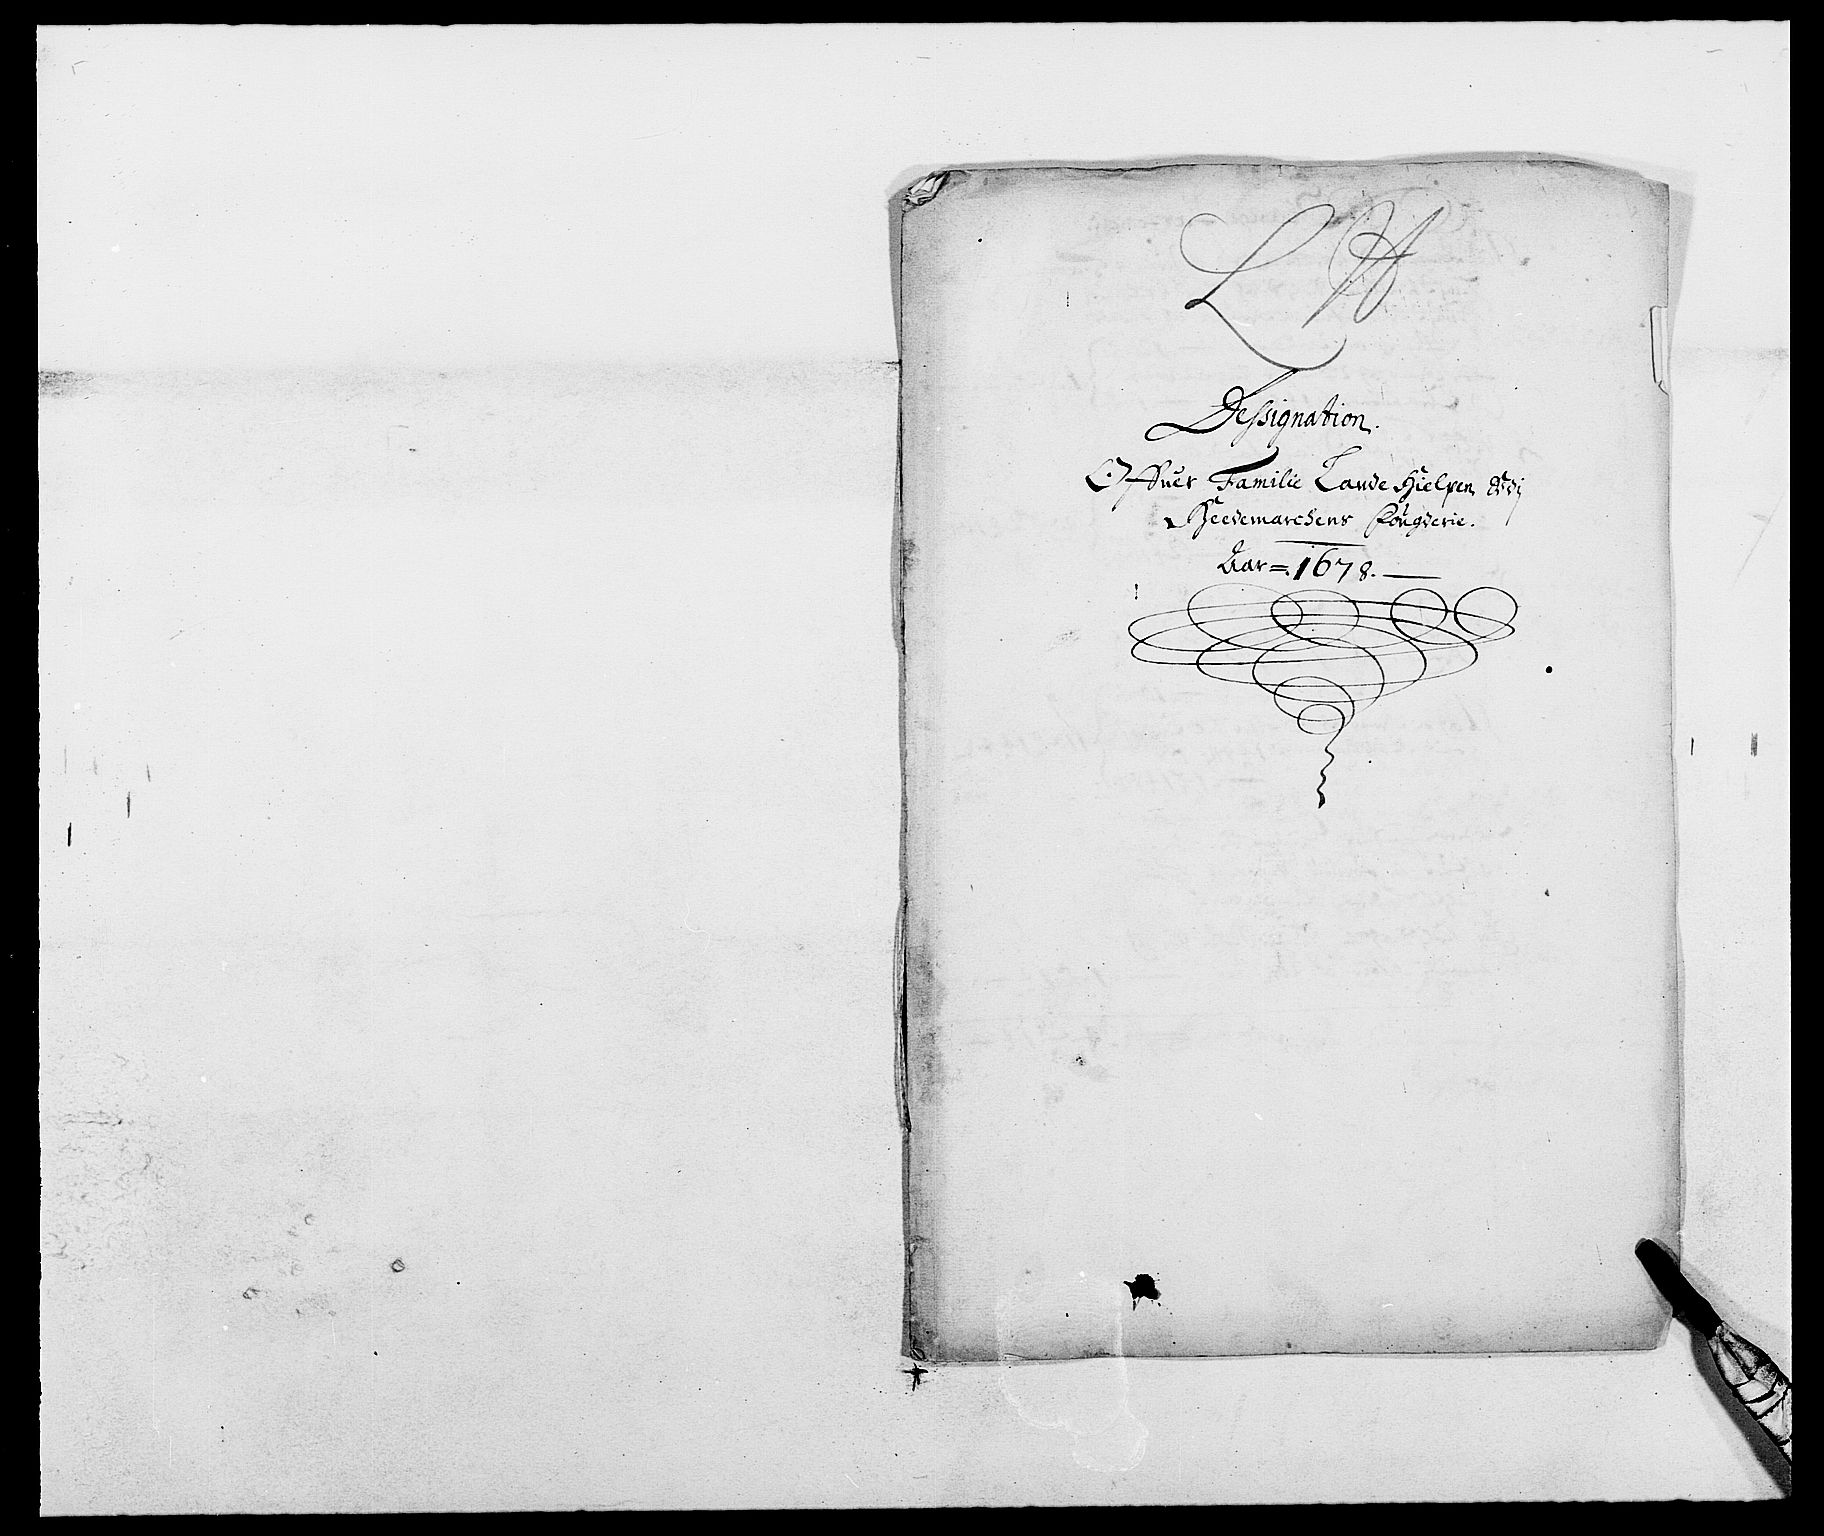 L A
Dessignation.
Offuer Familie Lande Hielpen Udj
Heedemarckens Fougderie.
Aar = 1678.